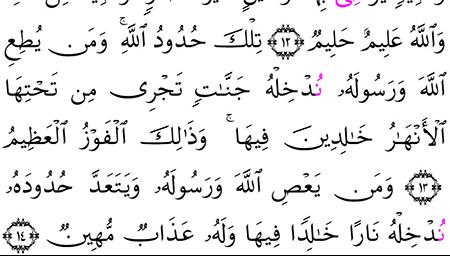 وَٱللَّهُ عَلِيمٌ حَلِيمٌ ١٢ تِلْكَ حُدُودُ ٱللَّهِ ۚ وَمَن يُطِعِ
ٱللَّهَ وَرَسُولَهُۥ نُدْخِلْهُ جَنَّـٰتٍ تَجْرِى مِن تَحْتِهَا
ٱلْأَنْهَـٰرُ خَـٰلِدِينَ فِيهَا ۚ وَذَٰلِكَ ٱلْفَوْزُ ٱلْعَظِيمُ
١٣ وَمَن يَعْصِ ٱللَّهَ وَرَسُولَهُۥ وَيَتَعَدَّ حُدُودَهُۥ
نُدْخِلْهُ نَارًا خَـٰلِدًا فِيهَا وَلَهُۥ عَذَابٌ مُّهِينٌ ١٤